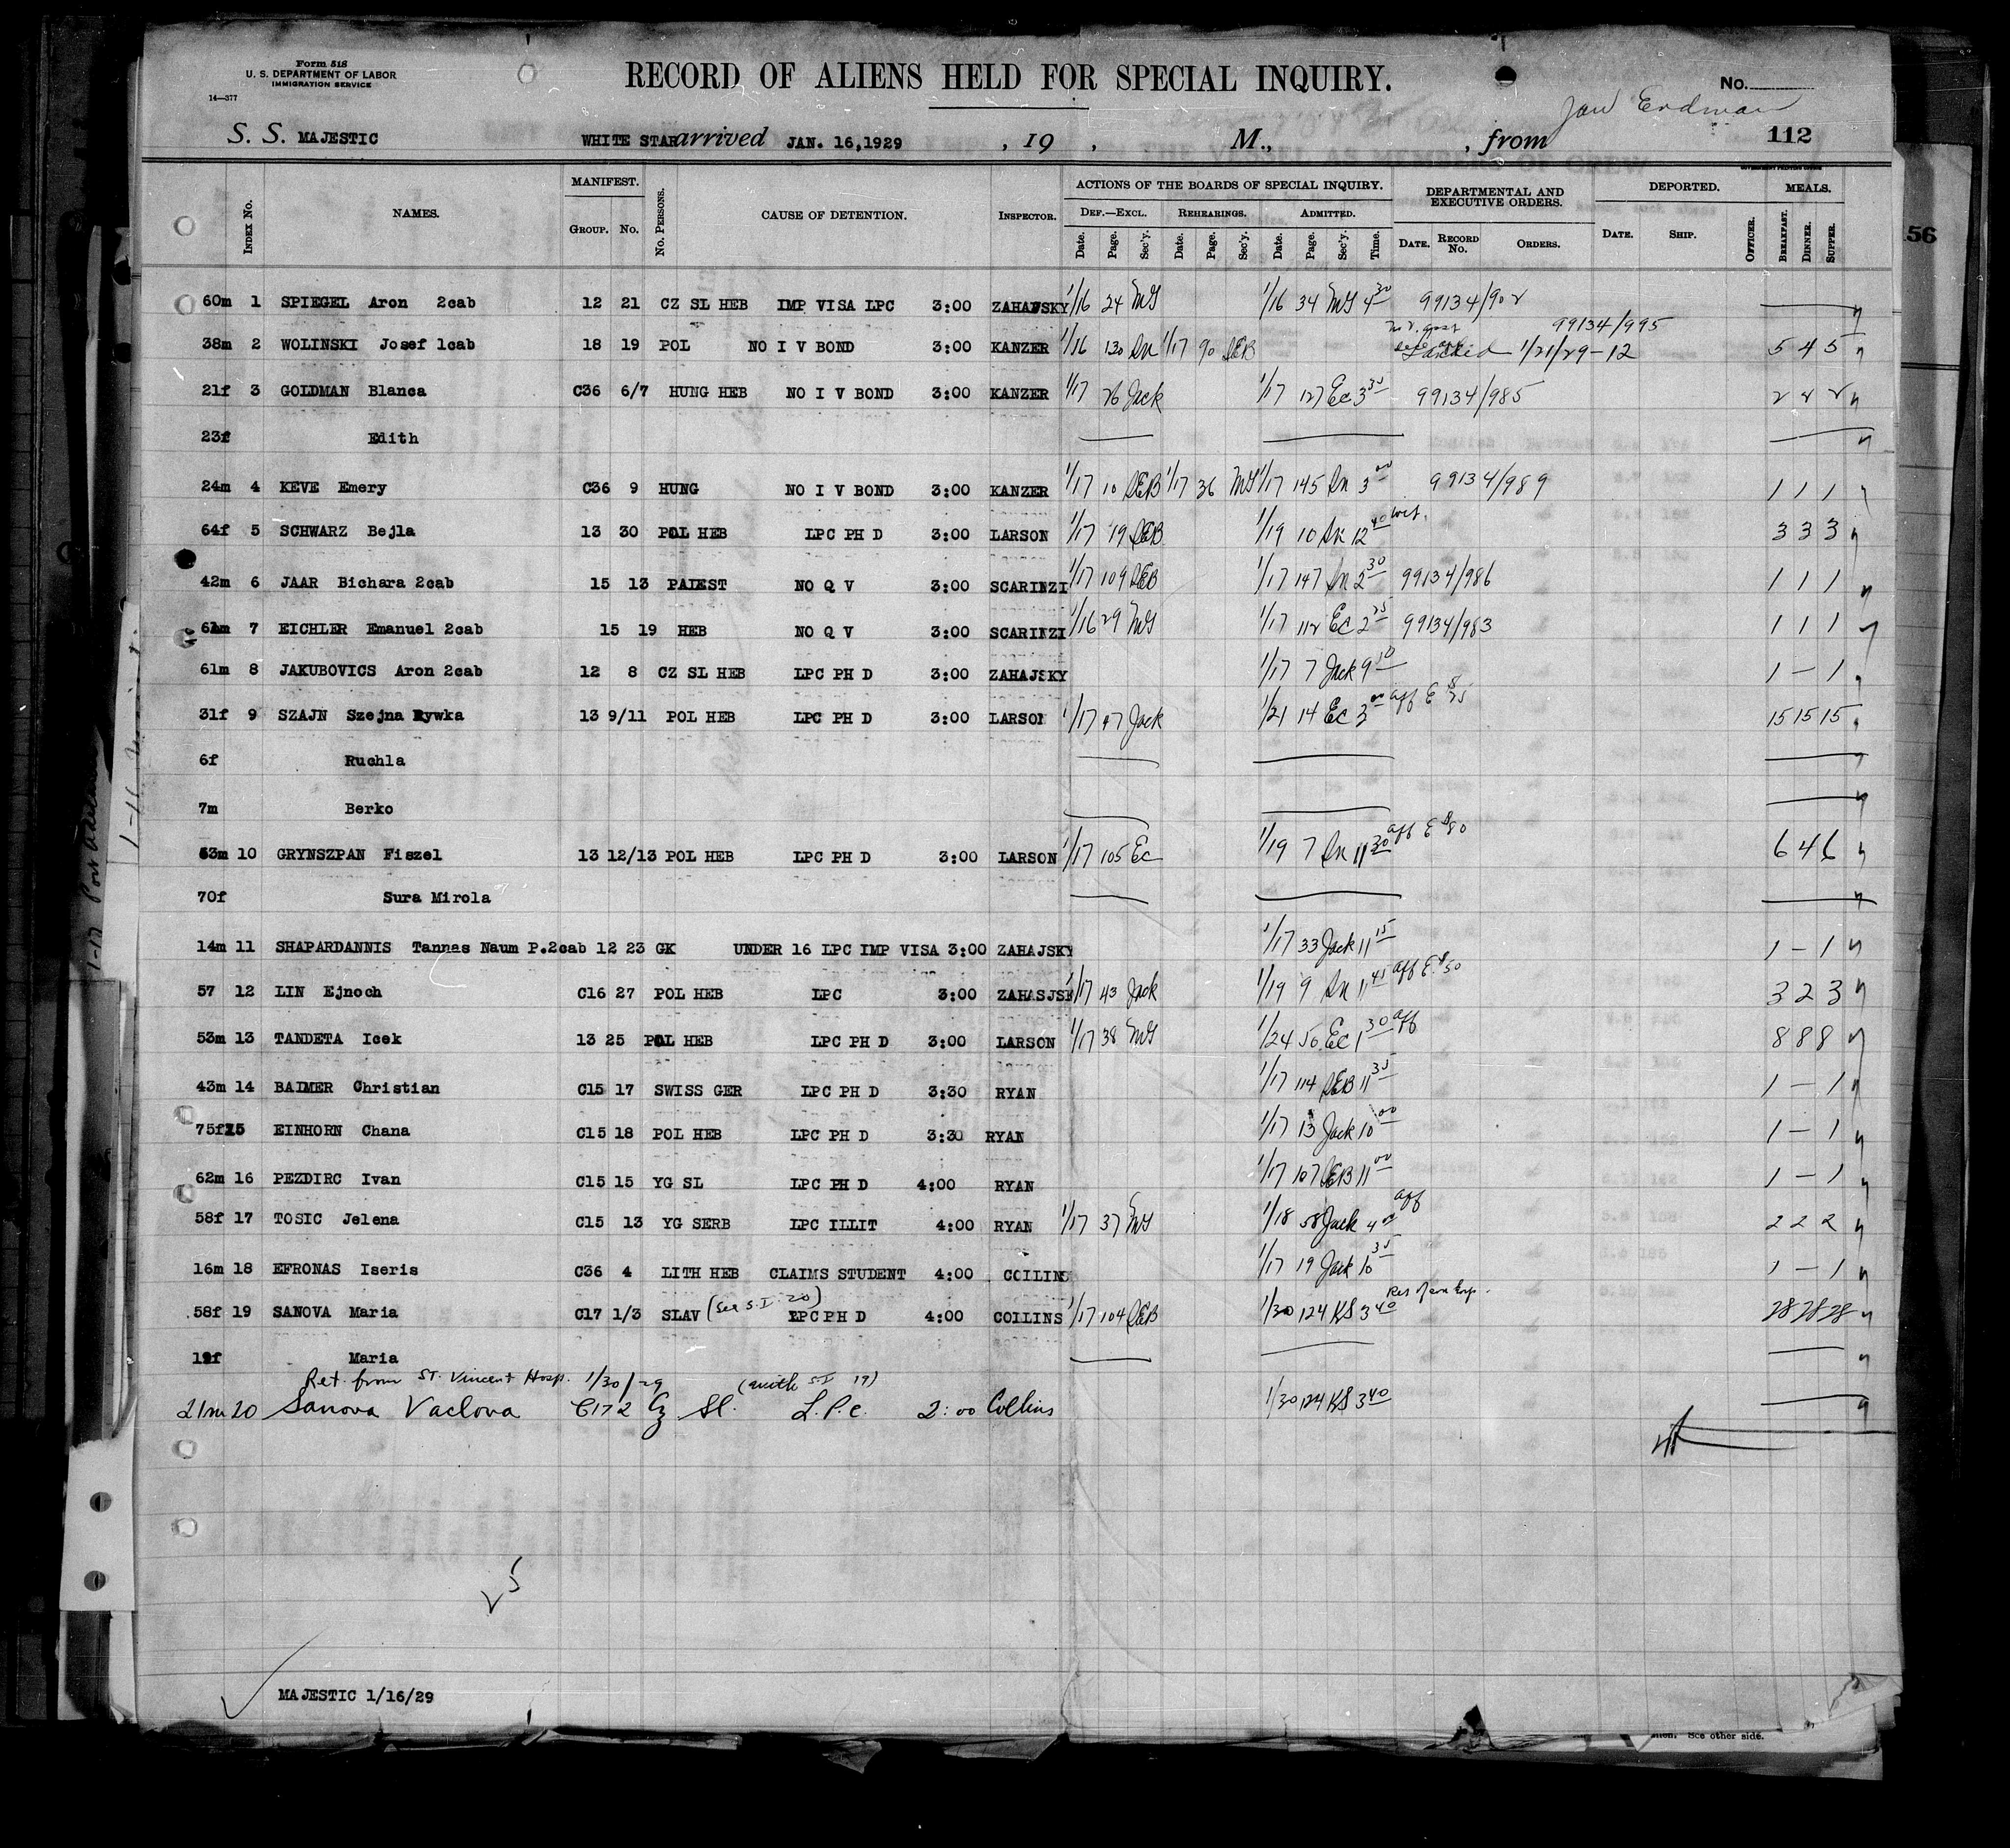 Form 518
U. S. DEPARTMENT OF LABOR
IMMIGRATION SERVICE
14—377
RECORD OF ALIENS HELD FOR SPECIAL INQUIRY.
No.
Jan Erdman
S. S. MAJESTIC WHITE STAR arrived JAN. 16,1929 , 19 , M., , from 112
GOVERNMENT PRINTING OFFICE
INDEX NO. NAMES. MANIFEST. GROUP. NO. NO. PERSONS. CAUSE OF DETENTION. INSPECTOR. ACTIONS OF THE BOARDS OF SPECIAL INQUIRY. DEF.—EXCL. Date. Page. Sec'y. REHEARINGS. Date. Page. Sec'y. ADMITTED. Date. Page. Sec'y. Time. DEPARTMENTAL AND EXECUTIVE ORDERS. DATE. RECORD NO. ORDERS. DEPORTED. DATE. SHIP. OFFICER. MEALS. BREAKFAST. DINNER. SUPPER.
56
60m 1 SPIEGEL Aron 2cab 12 21 CZ SL HEB IMP VISA LPC 3:00 ZAHAJSKY 1/16 24 MG 1/16 34 MG 4 30 99134/902
99134/995
38m 2 WOLINSKI Josef 1cab 18 19 POL NO I V BOND 3:00 KANZER 1/16 130 Sn 1/17 90 DEB Landed 1/21/29-12 5 4 5
21f 3 GOLDMAN Blanca C36 6/7 HUNG HEB NO I V BOND 3:00 KANZER 1/17 26 Jack 1/17 127 Ec 3 30 99134/985 2 2 2
23f Edith
24m 4 KEVE Emery C36 9 HUNG NO I V BOND 3:00 KANZER 1/17 10 DEB 1/17 36 MG 1/17 145 Sn 3 00 99134/989 1 1 1
64f 5 SCHWARZ Bejla 13 30 POL HEB LPC PH D 3:00 LARSON 1/17 19 DEB 1/19 10 Sn 12 40 3 3 3
42m 6 JAAR Bichara 2cab 15 13 PAlEST NO Q V 3:00 SCARINZI 1/17 109 DEB 1/17 147 Sn 2 30 99134/986 1 1 1
61m 7 EICHLER Emanuel 2cab 15 19 HEB NO Q V 3:00 SCARINZI 1/16 29 MG 1/17 112 Ec 2 25 99134/983 1 1 1
61m 8 JAKUBOVICS Aron 2cab 12 8 CZ SL HEB LPC PH D 3:00 ZAHAJSKY 1/17 7 Jack 9 10 1 – 1
31f 9 SZAJN Szejna Rywka 13 9/11 POL HEB LPC PH D 3:00 LARSON 1/17 47 Jack 1/21 14 Ec 3 00 aff E $75 15 15 15
6f Ruchla
7m Berko
53m 10 GRYNSZPAN Fiszel 13 12/13 POL HEB LPC PH D 3:00 LARSON 1/17 105 Ec 1/19 7 Sn 11 30 aff E $80 6 4 6
70f Sura Mirola
14m 11 SHAPARDANNIS Tannas Naum P.2cab 12 23 GK UNDER 16 LPC IMP VISA 3:00 ZAHAJSKY 1/17 33 Jack 11 15 1 – 1
57 12 LIN Ejnoch C16 27 POL HEB LPC 3:00 ZAHASJSK 1/17 43 Jack 1/19 9 Sn 11 45 aff E $50 3 2 3
53m 13 TANDETA Icek 13 25 POL HEB LPC PH D 3:00 LARSON 1/17 38 MG 1/24 50 Ec 1 30 aff 8 8 8
43m 14 BAIMER Christian C15 17 SWISS GER LPC PH D 3:30 RYAN 1/17 114 DEB 11 35 1 – 1
75f 15 EINHORN Chana C15 18 POL HEB LPC PH D 3:30 RYAN 1/17 13 Jack 10 00 1 – 1
62m 16 PEZDIRC Ivan C15 15 YG SL LPC PH D 4:00 RYAN 1/17 107 DEB 11 00 1 – 1
58f 17 TOSIC Jelena C15 13 YG SERB LPC ILLIT 4:00 RYAN 1/17 37 MG 1/18 58 Jack 4 00 aff 2 2 2
16m 18 EFRONAS Iseris C36 4 LITH HEB CLAIMS STUDENT 4:00 COllINS 1/17 19 Jack 10 35 1 – 1
58f 19 SANOVA Maria C17 1/3 SLAV (See S.I. 20) LPC PH D 4:00 COllINS 1/17 104 DEB 1/30 124 KS 3 40 28 28 28
19f Maria
Ret. from St. Vincent Hosp. 1/30/29 (with S.I. 19)
21m 20 Sanova Vaclova C17 2 Cz Sl. L.P.C. 2:00 Collins 1/30 124 KS 3 40
25
MAJESTIC 1/16/29
See other side.